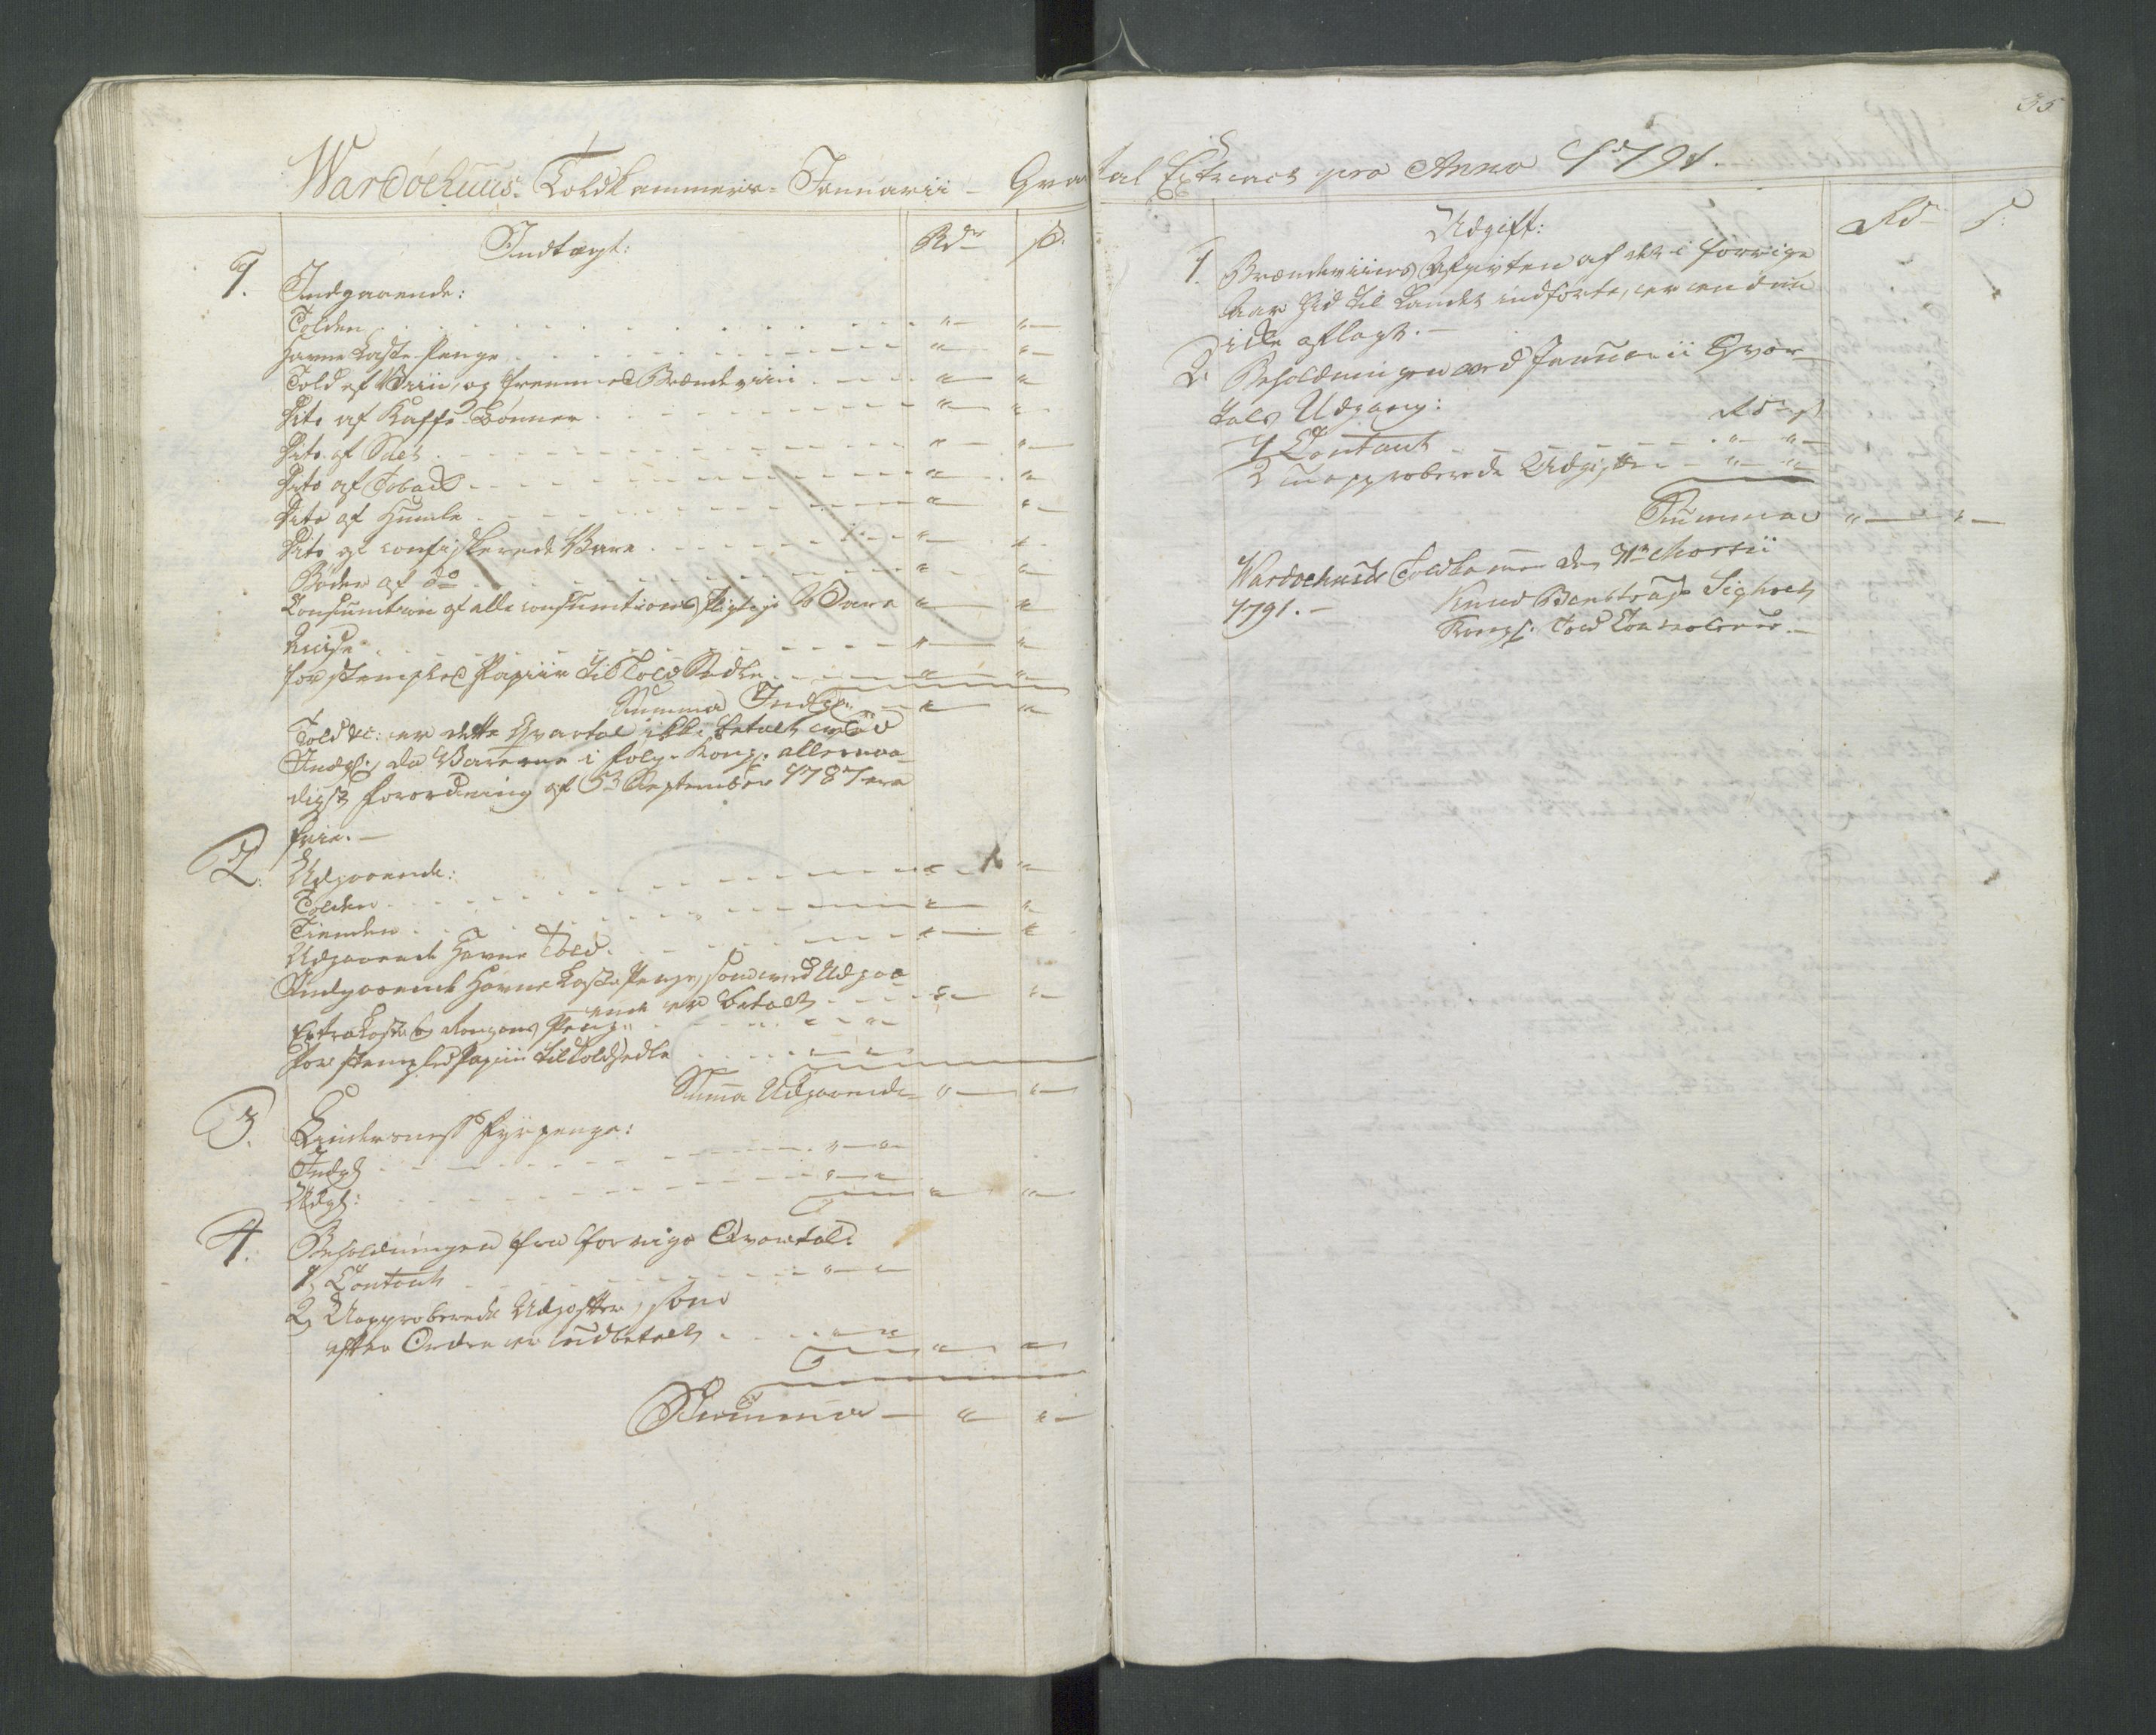 Wardöehuus Toldkammers Januarii Qvartal Extract pro Anno 1791.
35
Indtægt: Rdr ß.
1. Indgaaende:
Tolden " "
Havne Laste Penge " "
Told af Viin, og fremmed Brændeviin " "
Dito af Kaffe Bönner " "
Dito af Salt " "
Dito af Toback " "
Dito af Humle " "
Dito af confiskerede Vare " "
Böder af do " "
Consumtion af alle consumtions pligtige Vare " "
Accise " "
for stemplet Papiir til Told Sedle " "
Summa Indg: " "
Told &c: er dette Qvartal ikke betalt ved
Indgl., da Varerne i fölge Kongl. allernaa-
digst forordning af 5 September 1787 ere
frie.
2. Udgaaende:
Tolden " "
Tienden " "
Udgaaende Havne Told " "
Indgaaende Havne Laste Penge, som ved Udgaa-
ende er betalt " "
Extra Laste og Penge " "
for stemplet Papiir til Toldsedle " "
Summa Udgaaende " "
3. Lindesness fyrpenge:
Indg: " "
Udg: " "
4. Beholdningen fra forrige Qvartal:
1, Contant " "
2, Uapproberede Udgifter, som
efter Ordre er udbetalt " "
Summa " "
Udgift: Rd ß:
1. Brændeviins Afgivten af det i forrige
Aar hid til Landet indförte, er endnu
ikke aflagt.
2. Beholdningen ved Januarii Qvar-
tals Udgang: Rd ß
1 Contant " "
2 Uapproberede Udgifter " "
Summa " "
Wardoehuus Toldkammer den 31te Martii
1791. Knud Sigholt
Kongl. Told Controleur.